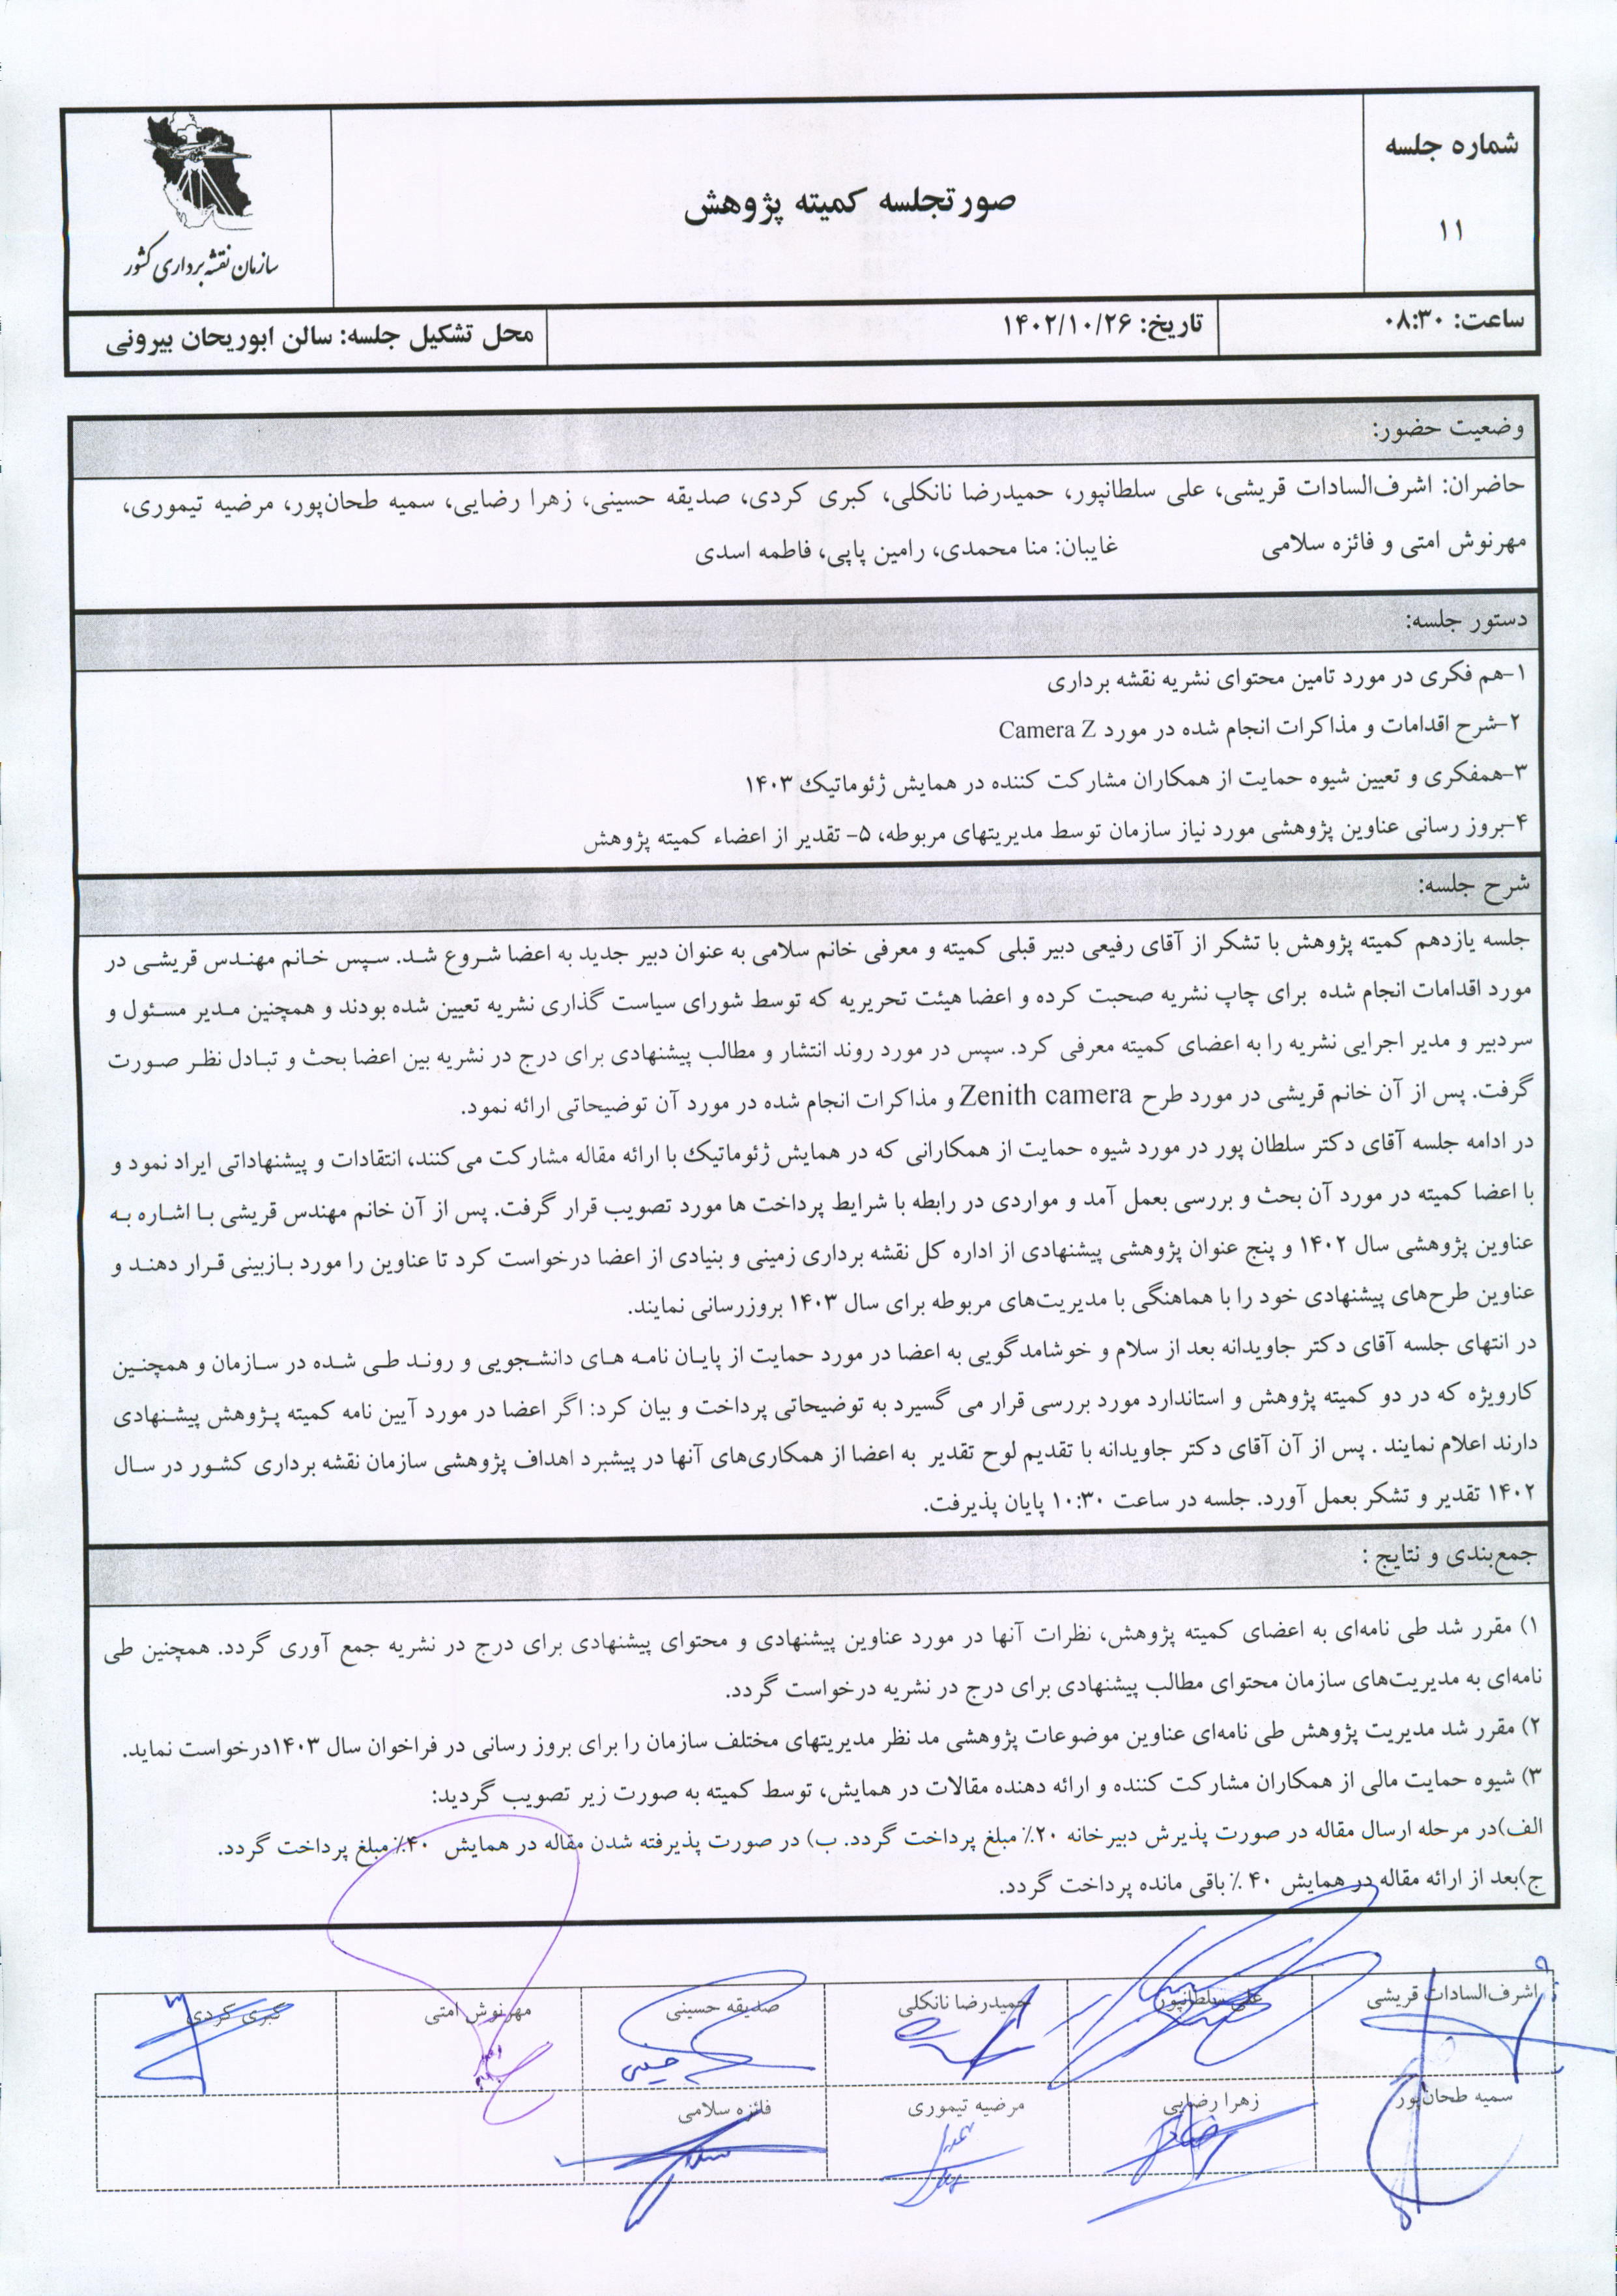 شماره جلسه
۱۱
صورتجلسه کمیته پژوهش
سازمان نقشه برداری کشور
ساعت: ۰۸:۳۰
تاریخ: ۱۴۰۲/۱۰/۲۶
محل تشکیل جلسه: سالن ابوریحان بیرونی
وضعیت حضور:
حاضران: اشرف‌السادات قریشی، علی سلطانپور، حمیدرضا نانکلی، کبری کردی، صدیقه حسینی، زهرا رضایی، سمیه طحان‌پور، مرضیه تیموری،
مهرنوش امتی و فائزه سلامی غایبان: منا محمدی، رامین پاپی، فاطمه اسدی
دستور جلسه:
۱-هم فکری در مورد تامین محتوای نشریه نقشه برداری
۲-شرح اقدامات و مذاکرات انجام شده در مورد Camera Z
۳-همفکری و تعیین شیوه حمایت از همکاران مشارکت کننده در همایش ژئوماتیک ۱۴۰۳
۴-بروز رسانی عناوین پژوهشی مورد نیاز سازمان توسط مدیریتهای مربوطه، ۵- تقدیر از اعضاء کمیته پژوهش
شرح جلسه:
جلسه یازدهم کمیته پژوهش با تشکر از آقای رفیعی دبیر قبلی کمیته و معرفی خانم سلامی به عنوان دبیر جدید به اعضا شروع شد. سپس خانم مهندس قریشی در
مورد اقدامات انجام شده برای چاپ نشریه صحبت کرده و اعضا هیئت تحریریه که توسط شورای سیاست گذاری نشریه تعیین شده بودند و همچنین مدیر مسئول و
سردبیر و مدیر اجرایی نشریه را به اعضای کمیته معرفی کرد. سپس در مورد روند انتشار و مطالب پیشنهادی برای درج در نشریه بین اعضا بحث و تبادل نظر صورت
گرفت. پس از آن خانم قریشی در مورد طرح Zenith camera و مذاکرات انجام شده در مورد آن توضیحاتی ارائه نمود.
در ادامه جلسه آقای دکتر سلطان پور در مورد شیوه حمایت از همکارانی که در همایش ژئوماتیک با ارائه مقاله مشارکت می‌کنند، انتقادات و پیشنهاداتی ایراد نمود و
با اعضا کمیته در مورد آن بحث و بررسی بعمل آمد و مواردی در رابطه با شرایط پرداخت ها مورد تصویب قرار گرفت. پس از آن خانم مهندس قریشی با اشاره به
عناوین پژوهشی سال ۱۴۰۲ و پنج عنوان پژوهشی پیشنهادی از اداره کل نقشه برداری زمینی و بنیادی از اعضا درخواست کرد تا عناوین را مورد بازبینی قرار دهند و
عناوین طرح‌های پیشنهادی خود را با هماهنگی با مدیریت‌های مربوطه برای سال ۱۴۰۳ بروزرسانی نمایند.
در انتهای جلسه آقای دکتر جاویدانه بعد از سلام و خوشامدگویی به اعضا در مورد حمایت از پایان نامه های دانشجویی و روند طی شده در سازمان و همچنین
کارویژه که در دو کمیته پژوهش و استاندارد مورد بررسی قرار می گسیرد به توضیحاتی پرداخت و بیان کرد: اگر اعضا در مورد آیین نامه کمیته پژوهش پیشنهادی
دارند اعلام نمایند . پس از آن آقای دکتر جاویدانه با تقدیم لوح تقدیر به اعضا از همکاری‌های آنها در پیشبرد اهداف پژوهشی سازمان نقشه برداری کشور در سال
۱۴۰۲ تقدیر و تشکر بعمل آورد. جلسه در ساعت ۱۰:۳۰ پایان پذیرفت.
جمع‌بندی و نتایج :
۱) مقرر شد طی نامه‌ای به اعضای کمیته پژوهش، نظرات آنها در مورد عناوین پیشنهادی و محتوای پیشنهادی برای درج در نشریه جمع آوری گردد. همچنین طی
نامه‌ای به مدیریت‌های سازمان محتوای مطالب پیشنهادی برای درج در نشریه درخواست گردد.
۲) مقرر شد مدیریت پژوهش طی نامه‌ای عناوین موضوعات پژوهشی مد نظر مدیریتهای مختلف سازمان را برای بروز رسانی در فراخوان سال ۱۴۰۳درخواست نماید.
۳) شیوه حمایت مالی از همکاران مشارکت کننده و ارائه دهنده مقالات در همایش، توسط کمیته به صورت زیر تصویب گردید:
الف)در مرحله ارسال مقاله در صورت پذیرش دبیرخانه ۲۰٪ مبلغ پرداخت گردد. ب) در صورت پذیرفته شدن مقاله در همایش ۴۰٪ مبلغ پرداخت گردد.
ج)بعد از ارائه مقاله در همایش ۴۰ ٪ باقی مانده پرداخت گردد.
اشرف‌السادات قریشی علی سلطانپور حمیدرضا نانکلی صدیقه حسینی مهرنوش امتی کبری کردی
حسینی
سمیه طحان‌پور زهرا رضایی مرضیه تیموری فائزه سلامی